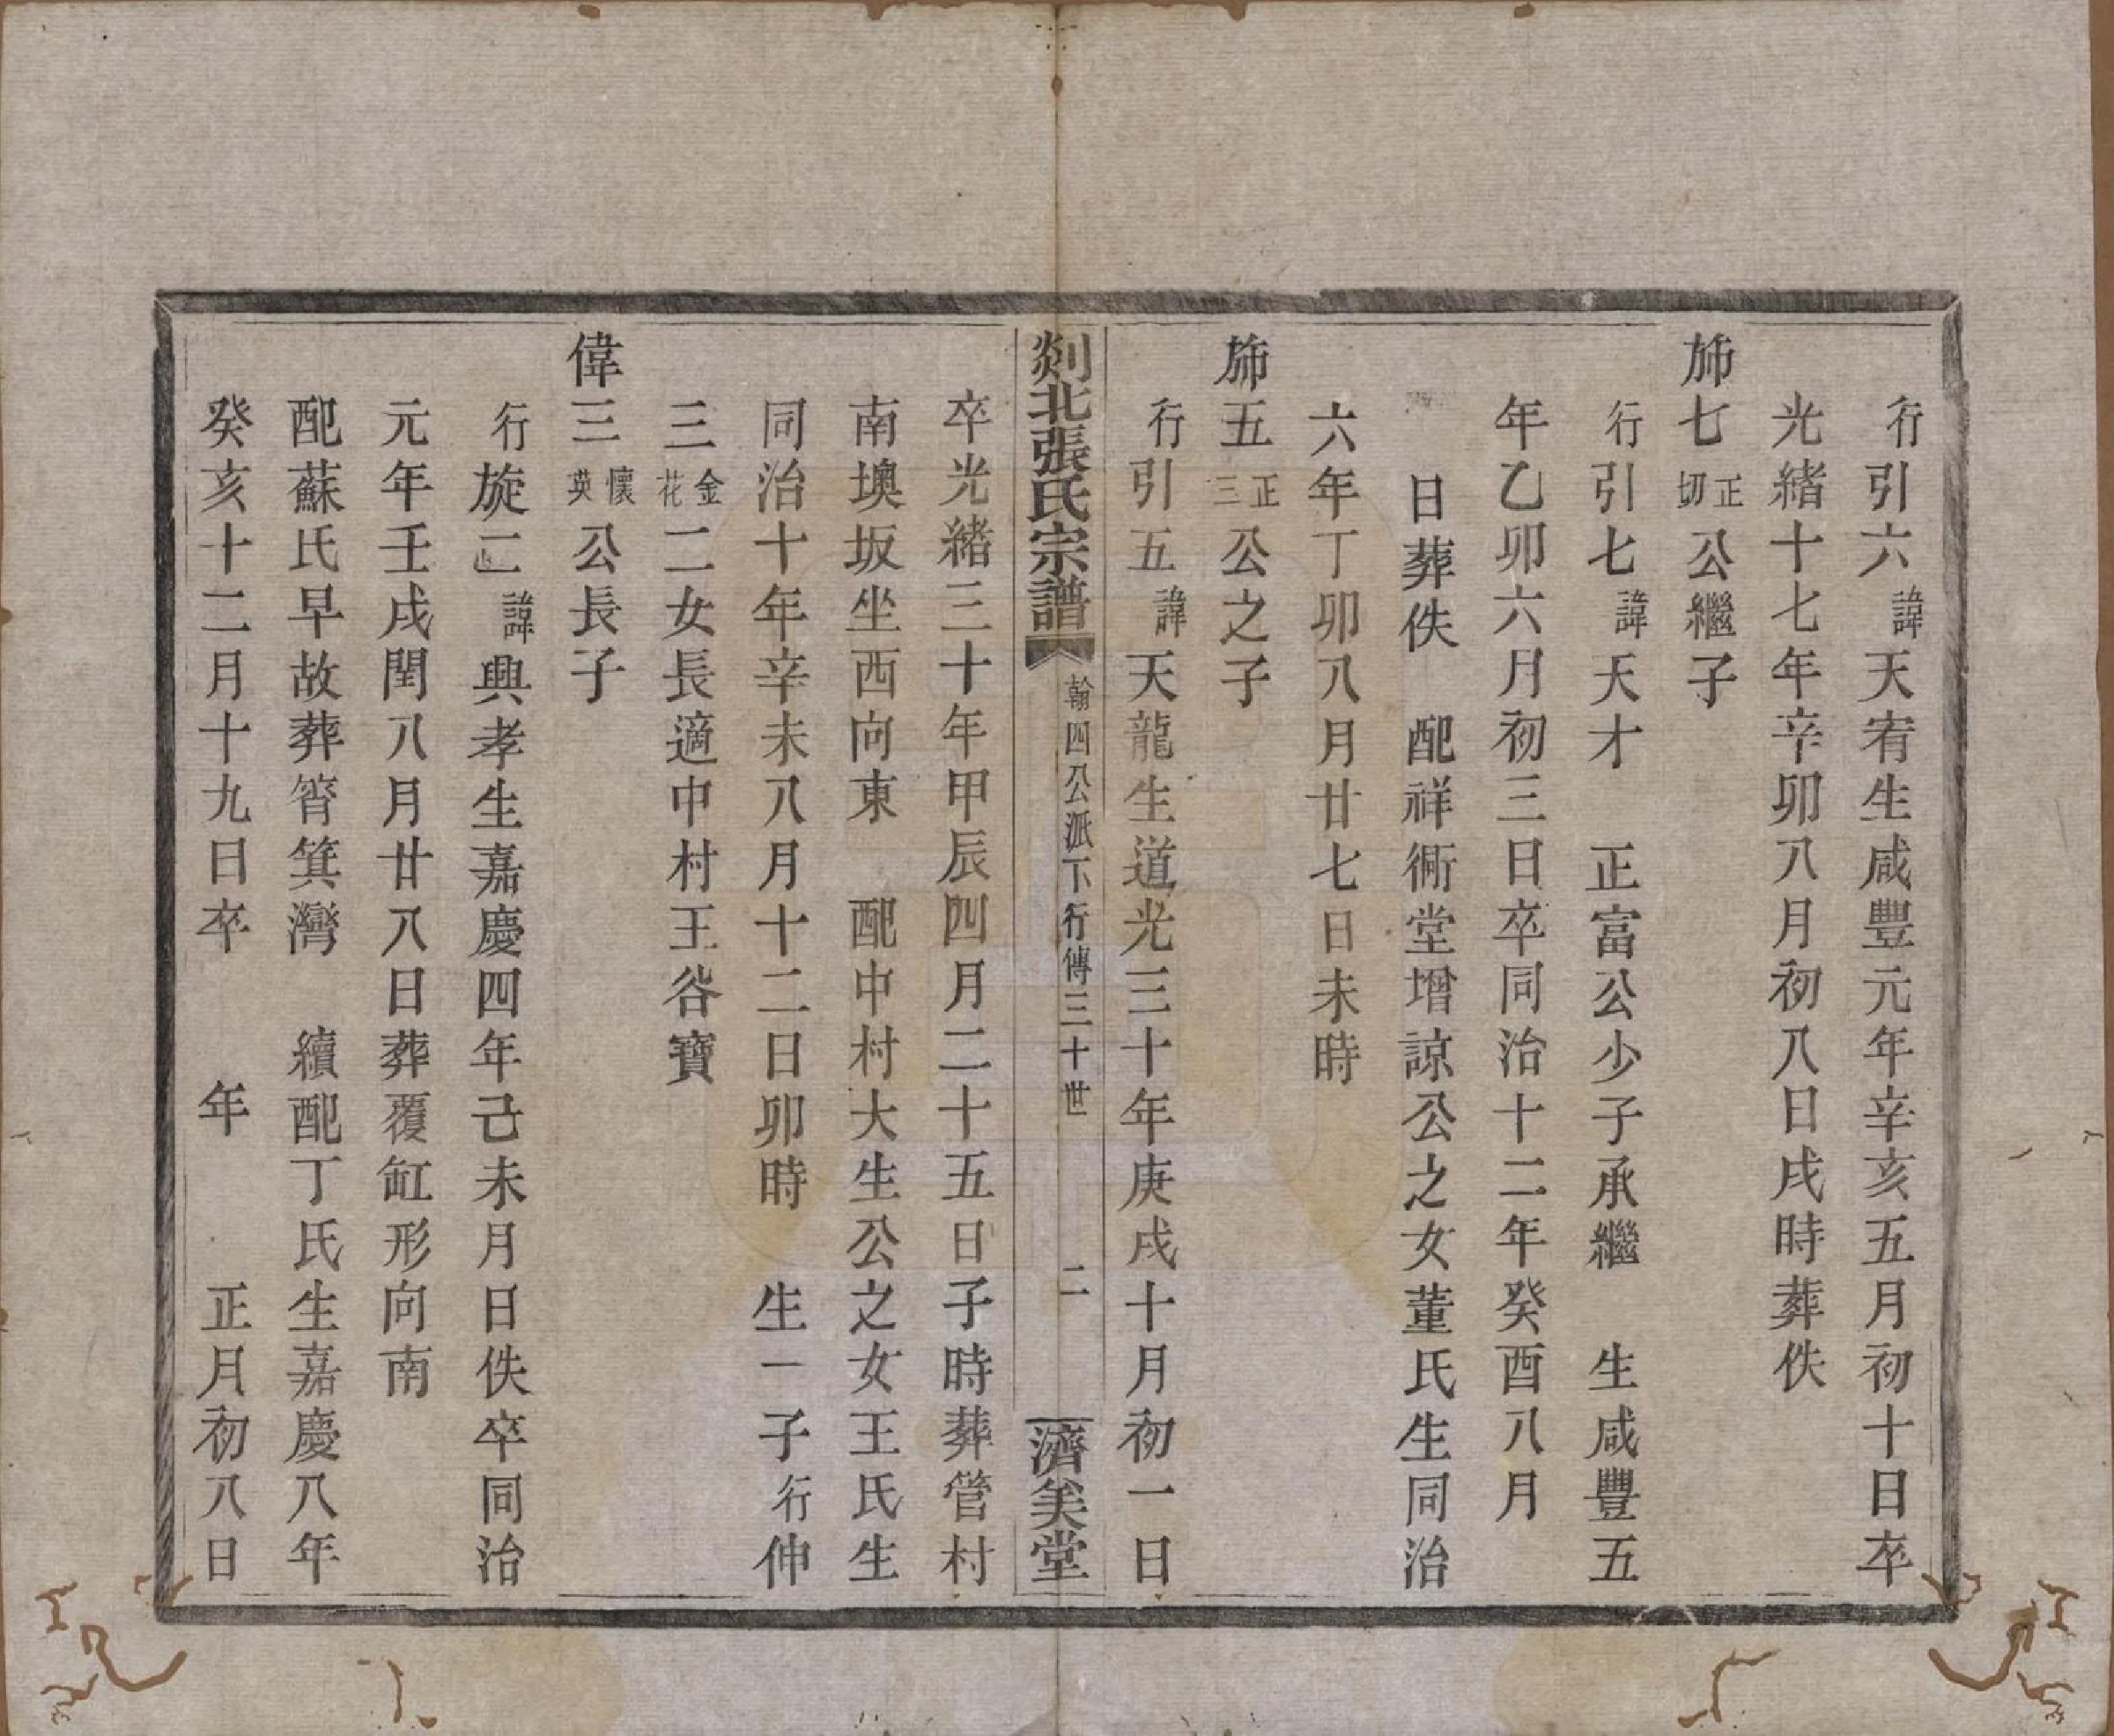 行引六諱天宥生咸豐元年辛亥五月初十日卒
光緒十七年辛卯八月初八日戌時葬佚
斾七正切公繼子
行引七諱天才　正富公少子承繼　生咸豐五
年乙卯六月初三日卒同治十二年癸酉八月
日葬佚　配祥衕堂增諒公之女董氏生同治
六年丁卯八月廿七日未時
斾五正三公之子
行引五諱天龍生道光三十年庚戌十月初一日
剡北張氏宗譜　翰四公派下行傳三十世　二　濟美堂
卒光緒三十年甲辰四月二十五日子時葬管村
南墺坂坐西向東　配中村大生公之女王氏生
同治十年辛未八月十二日卯時　生一子行伸
三金花二女長適中村王谷寶
偉三懷英公長子
行旋二諱興孝生嘉慶四年己未月日佚卒同治
元年壬戌閏八月廿八日葬覆缸形向南
配蘇氏早故葬筲箕灣　續配丁氏生嘉慶八年
癸亥十二月十九日卒　年　正月初八日